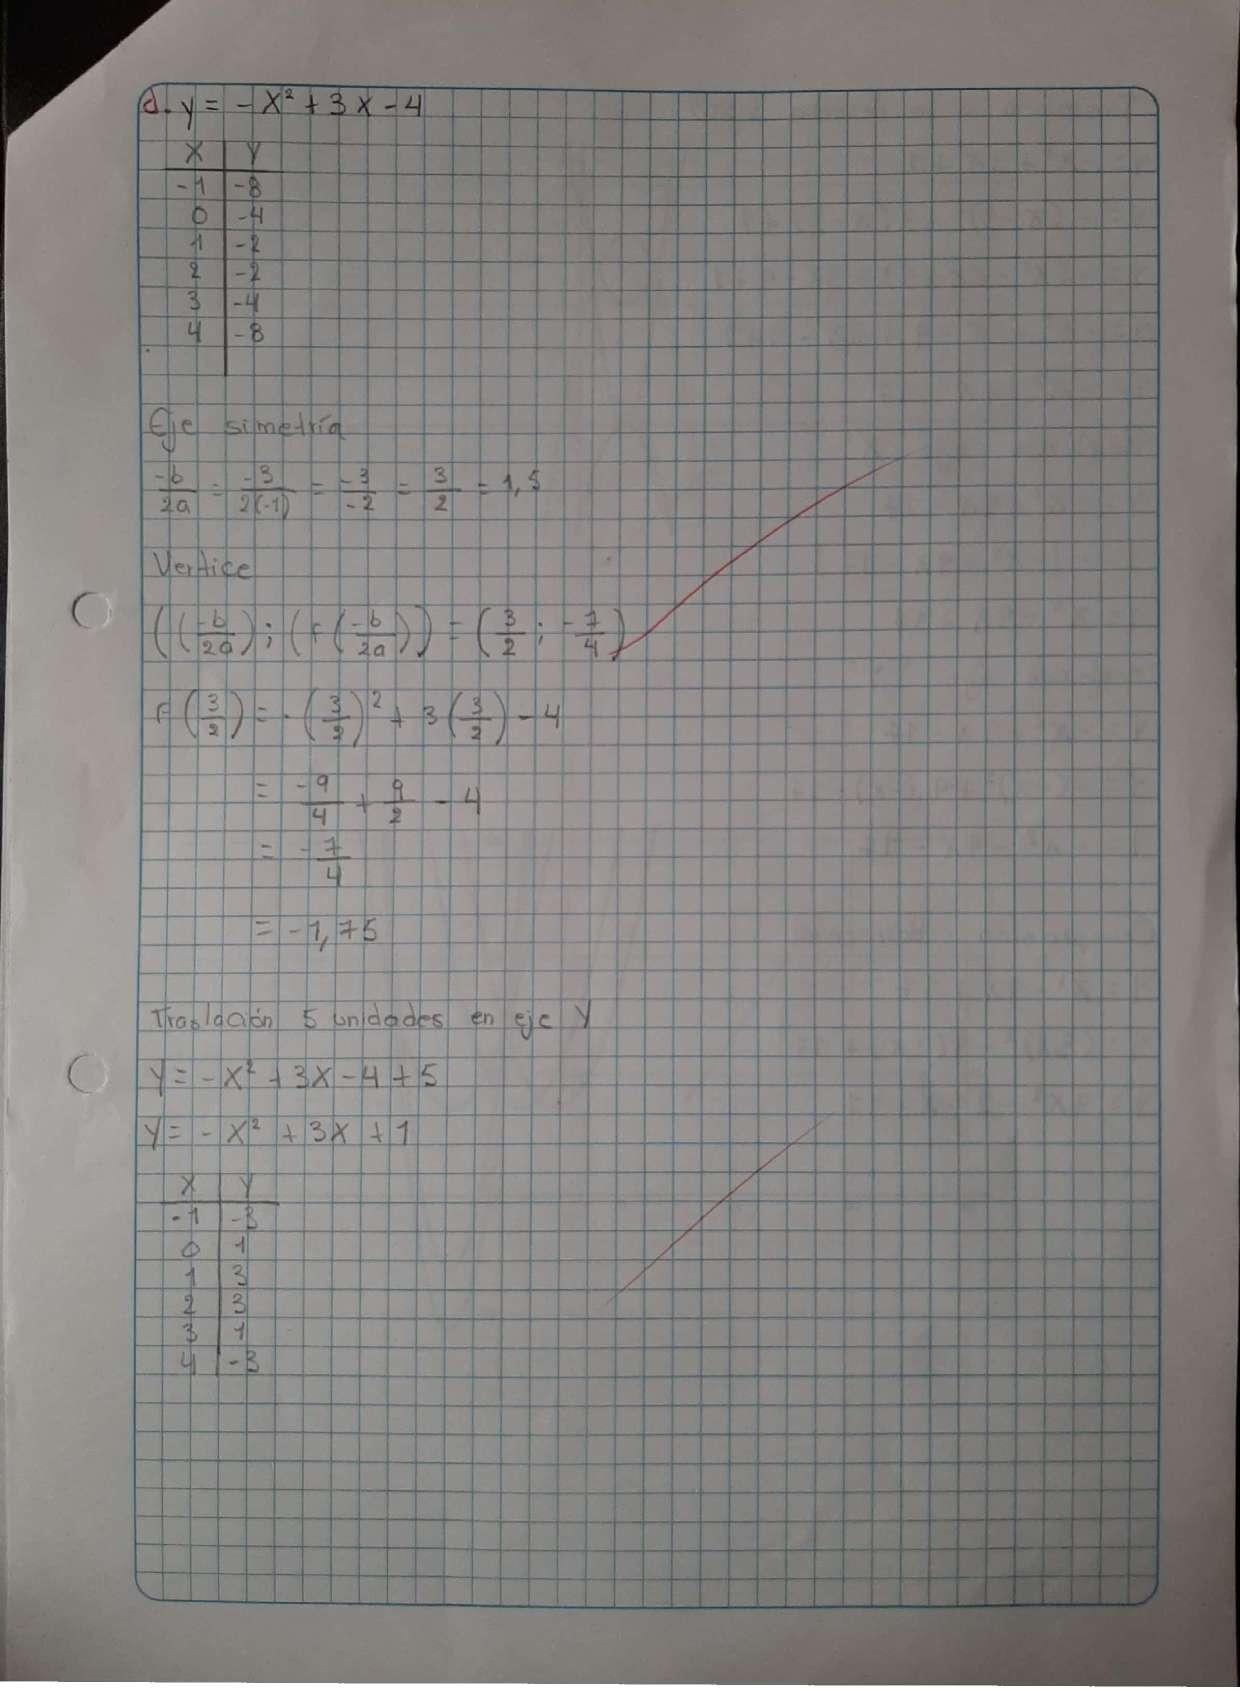 d. y = - x² + 3x - 4
X | Y
-1 | -8
0 | -4
1 | -2
2 | -2
3 | -4
4 | -8
Eje simetría
-b/2a = -3/2(-1) = -3/-2 = 3/2 = 1,5
Vertice
((-b/2a); (F(-b/2a))) = (3/2; -7/4)
F(3/2) = -(3/2)² + 3(3/2) - 4
= -9/4 + 9/2 - 4
= -7/4
= -1,75
Traslación 5 unidades en eje Y
Y = - X² + 3X - 4 + 5
Y = - X² + 3X + 1
X | Y
-1 | -3
0 | 1
1 | 3
2 | 3
3 | 1
4 | -3